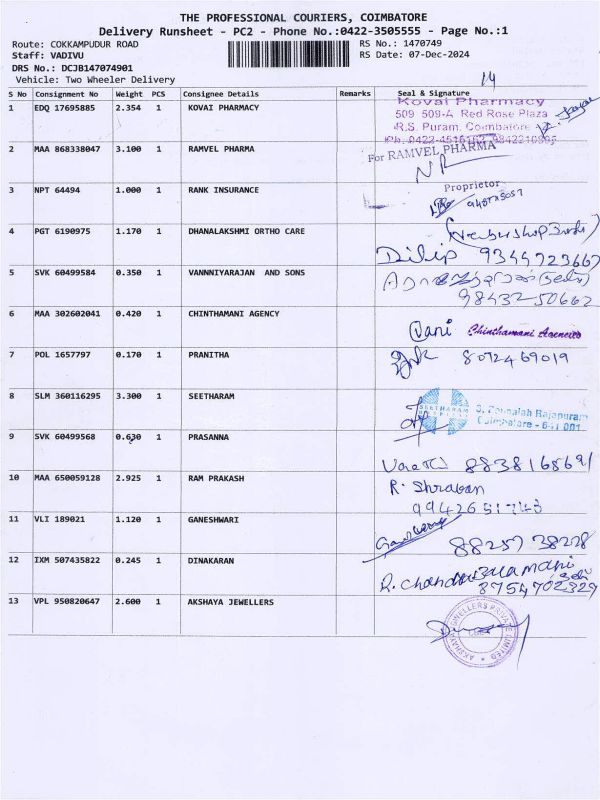 THE PROFESSIONAL COURIERS, COIMBATORE
Delivery Runsheet - PC2 - Phone No.:0422-3505555 - Page No.:1
Route: COKKAMPUDUR ROAD
RS No.: 1470749
Staff: VADIVU
RS Date: 07-Dec-2024
DRS No.: DCJB147074901
Vehicle: Two Wheeler Delivery
14
S No Consignment No Weight PCS Consignee Details Remarks Seal & Signature
1 EDQ 17695885 2.354 1 KOVAI PHARMACY
Kovai Pharmacy
509 509-A Red Rose Plaza
R.S. Puram, Coimbatore
2 MAA 868338047 3.100 1 RAMVEL PHARMA
For RAMVEL PHARMA
Proprietor
3 NPT 64494 1.000 1 RANK INSURANCE
4 PGT 6190975 1.170 1 DHANALAKSHMI ORTHO CARE
Dilip 9344723667
5 SVK 60499584 0.350 1 VANNNIYARAJAN AND SONS
98432 50662
6 MAA 302602041 0.420 1 CHINTHAMANI AGENCY
Vani Chinthamani Agencies
7 POL 1657797 0.170 1 PRANITHA
8072469019
8 SLM 360116295 3.300 1 SEETHARAM
SEETHARAM
Coimbatore - 641 001
9 SVK 60499568 0.630 1 PRASANNA
8838165691
10 MAA 650059128 2.925 1 RAM PRAKASH
R. Shravan
11 VLI 189021 1.120 1 GANESHWARI
88257 38228
12 IXM 507435822 0.245 1 DINAKARAN
8754702329
13 VPL 950820647 2.600 1 AKSHAYA JEWELLERS
AKSHAYA JEWELLERS PRIVATE LIMITED